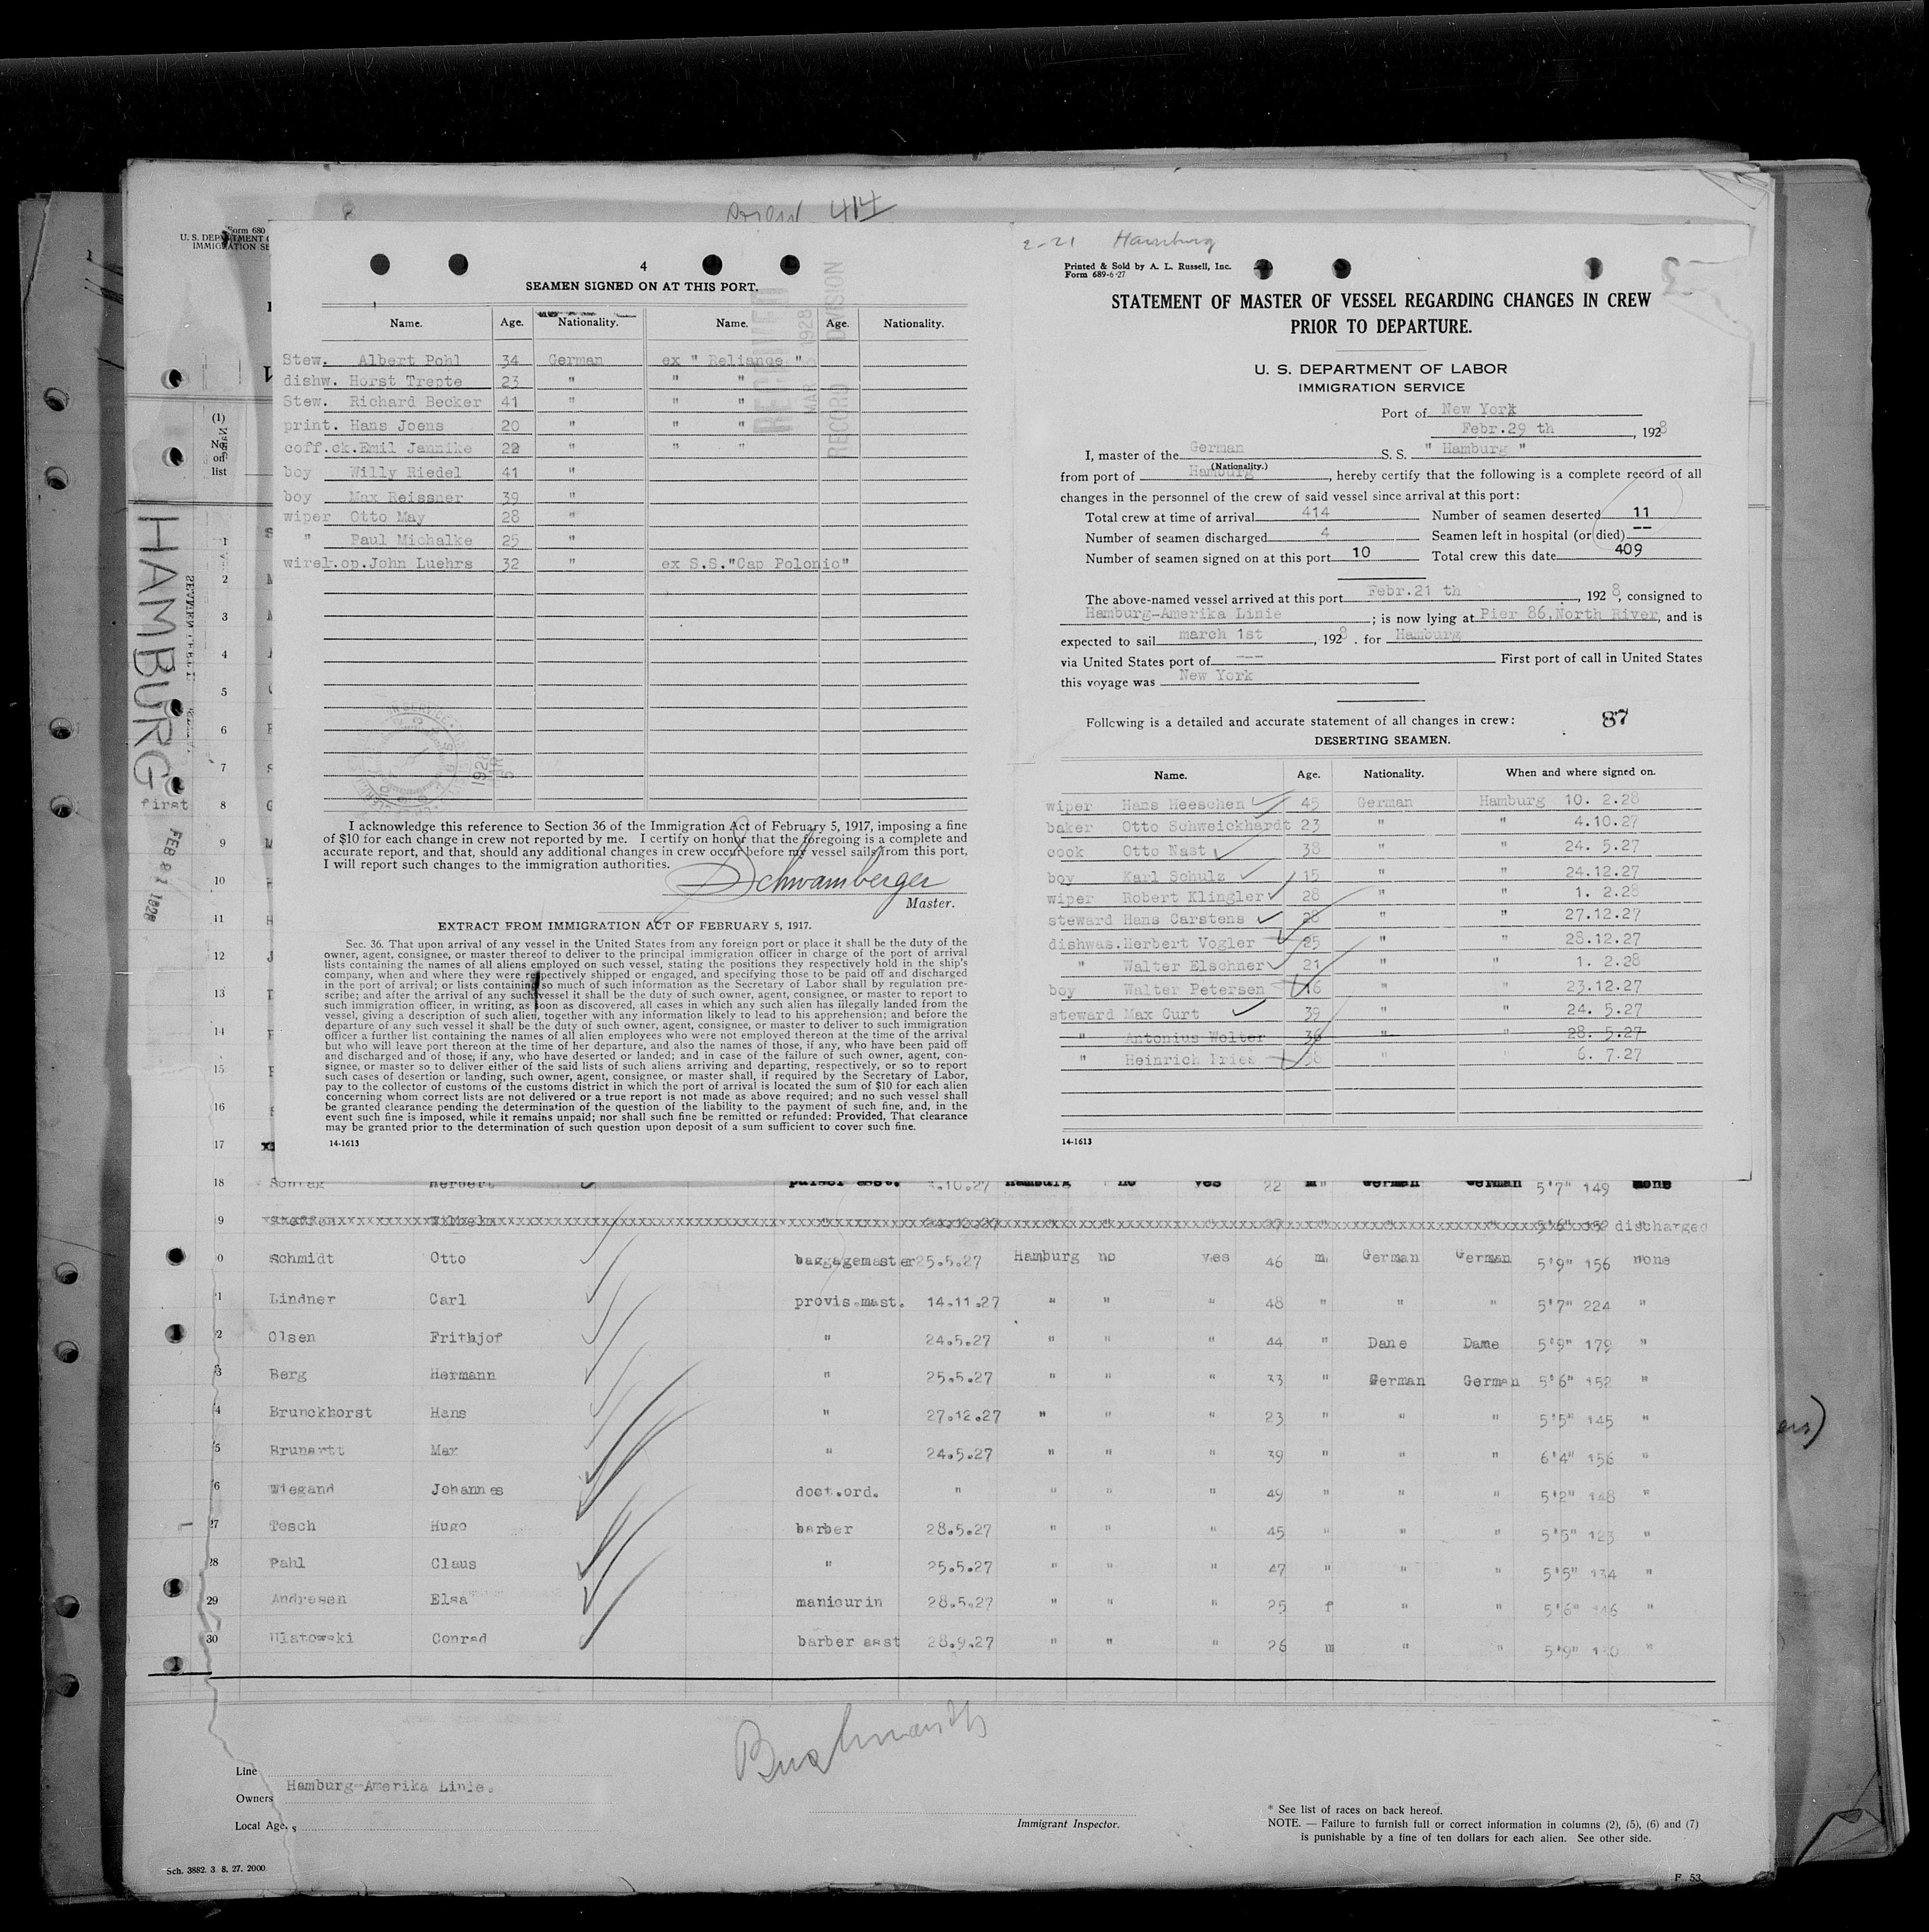 414
Form 680
U. S. DEPARTMENT
IMMIGRATION SE
4
SEAMEN SIGNED ON AT THIS PORT.
Name. Age. Nationality. Name. Age. Nationality.
Stew. Albert Pohl 34 German ex " Reliance "
dishw. Horst Trepte 23 " " "
Stew. Richard Becker 41 " " "
print. Hans Joens 20 " " "
coff.ck.Emil Jannike 22 " " "
boy Willy Riedel 41 "
boy Max Reissner 39 "
wiper Otto May 28 "
" Paul Michalke 25 "
wirel.op.John Luehrs 32 " ex S.S."Cap Polonio"
RECEIVED
MAR 5 1928
RECORD DIVISION
1928
MAR
5
I acknowledge this reference to Section 36 of the Immigration Act of February 5, 1917, imposing a fine
of $10 for each change in crew not reported by me. I certify on honor that the foregoing is a complete and
accurate report, and that, should any additional changes in crew occur before my vessel sails from this port,
I will report such changes to the immigration authorities.
Schwamberger
Master.
EXTRACT FROM IMMIGRATION ACT OF FEBRUARY 5, 1917.
Sec. 36. That upon arrival of any vessel in the United States from any foreign port or place it shall be the duty of the
owner, agent, consignee, or master thereof to deliver to the principal immigration officer in charge of the port of arrival
lists containing the names of all aliens employed on such vessel, stating the positions they respectively hold in the ship's
company, when and where they were respectively shipped or engaged, and specifying those to be paid off and discharged
in the port of arrival; or lists containing so much of such information as the Secretary of Labor shall by regulation pre-
scribe; and after the arrival of any such vessel it shall be the duty of such owner, agent, consignee, or master to report to
such immigration officer, in writing, as soon as discovered, all cases in which any such alien has illegally landed from the
vessel, giving a description of such alien, together with any information likely to lead to his apprehension; and before the
departure of any such vessel it shall be the duty of such owner, agent, consignee, or master to deliver to such immigration
officer a further list containing the names of all alien employees who were not employed thereon at the time of the arrival
but who will leave port thereon at the time of her departure, and also the names of those, if any, who have been paid off
and discharged and of those, if any, who have deserted or landed; and in case of the failure of such owner, agent, con-
signee, or master so to deliver either of the said lists of such aliens arriving and departing, respectively, or so to report
such cases of desertion or landing, such owner, agent, consignee, or master shall, if required by the Secretary of Labor,
pay to the collector of customs of the customs district in which the port of arrival is located the sum of $10 for each alien
concerning whom correct lists are not delivered or a true report is not made as above required; and no such vessel shall
be granted clearance pending the determination of the question of the liability to the payment of such fine, and, in the
event such fine is imposed, while it remains unpaid; nor shall such fine be remitted or refunded: Provided, That clearance
may be granted prior to the determination of such question upon deposit of a sum sufficient to cover such fine.
14-1613
2-21 Hamburg
Printed & Sold by A. L. Russell, Inc.
Form 689-6-27
STATEMENT OF MASTER OF VESSEL REGARDING CHANGES IN CREW
PRIOR TO DEPARTURE.
U. S. DEPARTMENT OF LABOR
IMMIGRATION SERVICE
Port of New York
Febr.29 th , 1928
I, master of the German S. S. " Hamburg "
(Nationality.)
from port of Hamburg , hereby certify that the following is a complete record of all
changes in the personnel of the crew of said vessel since arrival at this port:
Total crew at time of arrival 414 Number of seamen deserted 11
Number of seamen discharged 4 Seamen left in hospital (or died) --
Number of seamen signed on at this port 10 Total crew this date 409
The above-named vessel arrived at this port Febr.21 th , 1928, consigned to
Hamburg-Amerika Linie ; is now lying at Pier 86,North River, and is
expected to sail march 1st , 1928 . for Hamburg
via United States port of --- First port of call in United States
this voyage was New York
Following is a detailed and accurate statement of all changes in crew: 87
DESERTING SEAMEN.
Name. Age. Nationality. When and where signed on.
wiper Hans Heeschen 45 German Hamburg 10. 2.28
baker Otto Schweickhardt 23 " " 4.10.27
cook Otto Nast 38 " " 24. 5.27
boy Karl Schulz 15 " " 24.12.27
wiper Robert Klingler 28 " " 1. 2.28
steward Hans Carstens 28 " " 27.12.27
dishwas.Herbert Vogler 25 " " 28.12.27
" Walter Elschner 21 " " 1. 2.28
boy Walter Petersen 16 " " 23.12.27
steward Max Curt 39 " " 24. 5.27
" Antonius Wolter 36 " " 28. 5.27
" Heinrich Iries 38 " " 6. 7.27
14-1613
(1)
No.
on
list
HAMBURG
first
FEB 21 1928
1
2
3
4
5
6
7
8
9
10
11
12
13
14
15
16
17
18 Sontag Herbert purser asst. .10.27 Hamburg no yes 22 m German German 5'7" 149 none
9 Steffen Wilhelm discharged
0 Schmidt Otto baggagemaster 25.5.27 Hamburg no yes 46 m German German 5'9" 156 none
1 Lindner Carl provis.mast. 14.11.27 " " " 48 " " " 5'7" 224 "
2 Olsen Frithjof " 24.5.27 " " " 44 " Dane Dane 5'9" 179 "
3 Berg Hermann " 25.5.27 " " " 33 " German German 5'6" 152 "
4 Brunckhorst Hans " 27.12.27 " " " 23 " " " 5'5" 145 "
5 Brunartt Max " 24.5.27 " " " 39 " " " 6'4" 156 "
6 Wiegand Johannes doct.ord. " " " " 49 " " " 5'2" 148 "
27 Tesch Hugo barber 28.5.27 " " " 45 " " " 5'5" 123 "
28 Pahl Claus " 25.5.27 " " " 47 " " " 5'5" 134 "
29 Andresen Elsa manicurin 28.5.27 " " " 25 f " " 5'6" 146 "
30 Ulatowski Conrad barber asst 28.9.27 " " " 26 m " " 5'9" "
Line
Hamburg-Amerika Linie.
Owners
Local Age s
Immigrant Inspector.
* See list of races on back hereof.
NOTE. — Failure to furnish full or correct information in columns (2), (5), (6) and (7)
is punishable by a fine of ten dollars for each alien. See other side.
Sch. 3882. 3. 8. 27. 2000
F. 53